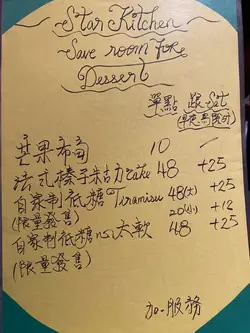 Star Kitchen
Save room for
Dessert
單點 跟Set
芒果布甸 10 -
法式榛子朱古力cake 48 +25
自家制低糖Tiramisu 48(大) +25
(限量發售) 20(小) +12
自家制低糖心太軟 48 +25
(限量發售)
加一服務